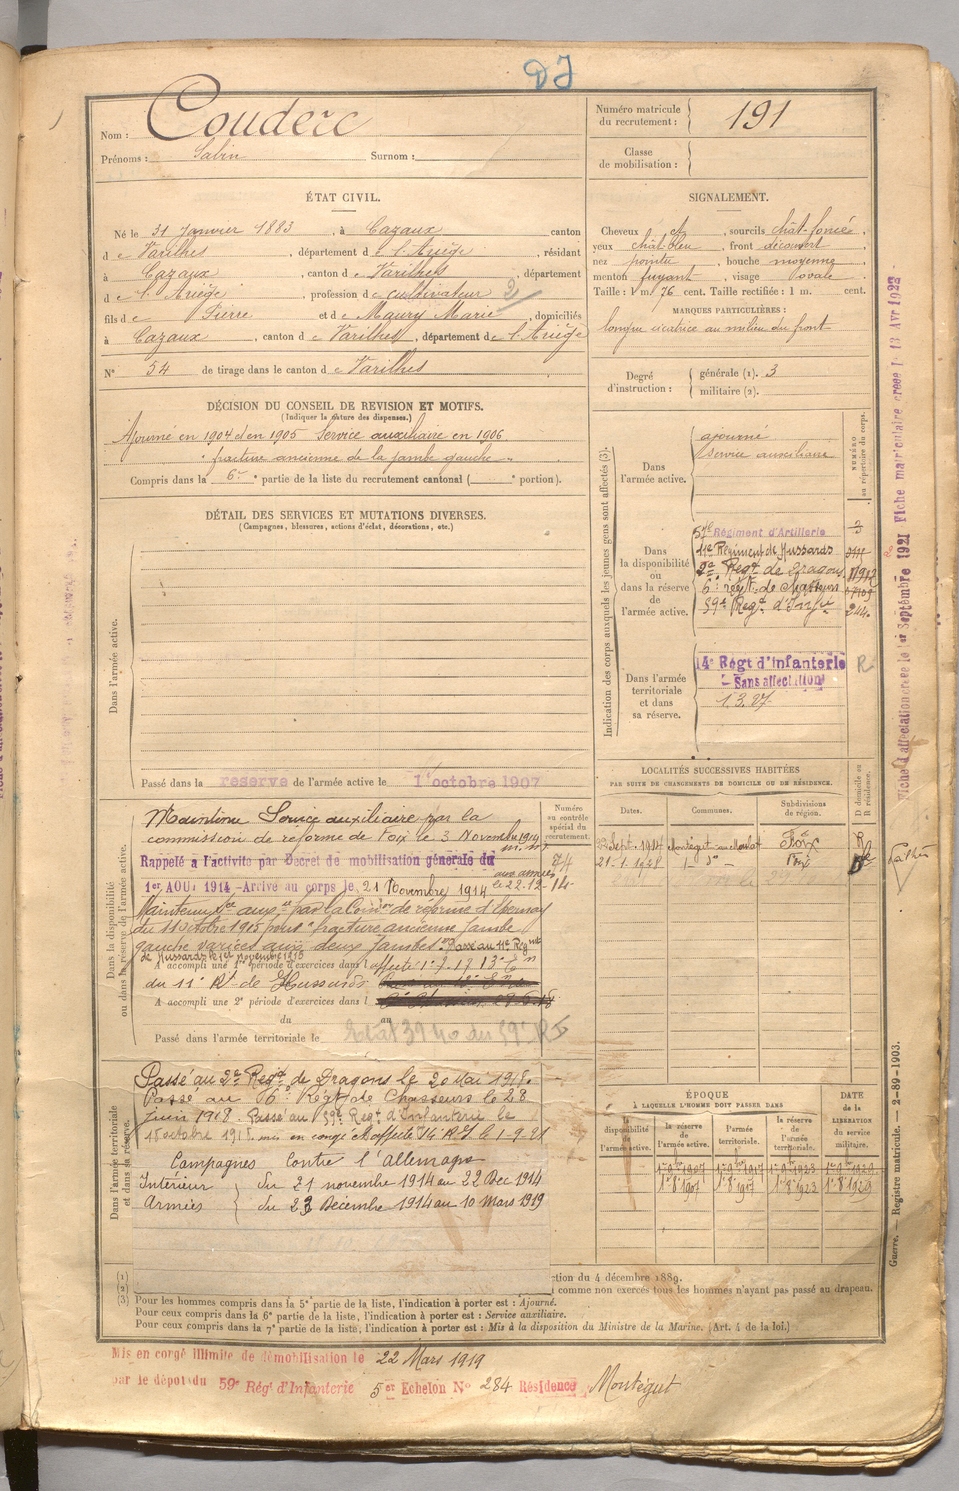 DJ
Nom : Couderc
Prénoms : Sabin Surnom :
Numéro matricule du recrutement : 191
Classe de mobilisation :
ÉTAT CIVIL.
Né le 31 Janvier 1883, à Cazaux canton
de Varilhes, département de l'Ariège, résidant
à Cazaux, canton de Varilhes, département
de l'Ariège, profession de cultivateur 2
fils de Pierre et de Maury Marie, domiciliés
à Cazaux, canton de Varilhes, département de l'Ariège
N° 54 de tirage dans le canton de Varilhes
SIGNALEMENT.
Cheveux ct, sourcils chât-foncé,
yeux chât-bleu, front découvert,
nez pointu, bouche moyenne,
menton fuyant, visage ovale
Taille : 1 m. 76 cent. Taille rectifiée : 1 m. cent.
MARQUES PARTICULIÈRES :
longue cicatrice au milieu du front
Degré d'instruction : générale (1). 3
militaire (2).
DÉCISION DU CONSEIL DE REVISION ET MOTIFS.
(Indiquer la nature des dispenses.)
Ajourné en 1904 et en 1905 Service auxiliaire en 1906
" fracture ancienne de la jambe gauche "
Compris dans la 6e partie de la liste du recrutement cantonal ( portion).
DÉTAIL DES SERVICES ET MUTATIONS DIVERSES.
(Campagnes, blessures, actions d'éclat, décorations, etc.)
Dans l'armée active.
Passé dans la réserve de l'armée active le 1er octobre 1907
Indication des corps auxquels les jeunes gens sont affectés (3).
NUMÉRO au répertoire du corps.
Dans l'armée active.
ajourné
service auxiliaire
Dans la disponibilité ou dans la réserve de l'armée active.
57e Régiment d'Artillerie
11e Régiment de Hussards
2e Regt de Dragons
6e régt de Chasseurs
59e Regt d'Infie 244
Dans l'armée territoriale et dans sa réserve.
14e Régt d'Infanterie R
Sans affectation
1.3.27
LOCALITÉS SUCCESSIVES HABITÉES
PAR SUITE DE CHANGEMENTS DE DOMICILE OU DE RÉSIDENCE.
Dates. Communes. Subdivisions de région. D domicile ou R résidence.
Sept. 1914 Montégut Foix R
21-1-1928 Foix D
Dans la disponibilité ou dans la réserve de l'armée active.
Numéro au contrôle spécial du recrutement.
Maintenu Service auxiliaire par la
commission de réforme de Foix le 3 Novembre 1914
Rappelé à l'activité par Décret de mobilisation générale du
1er AOUT 1914 - Arrivé au corps le 21 Novembre 1914 aux armées le 22-12-14-
Maintenu Sce aux. par la Con de réforme d'Epernay
du 11 octobre 1915 pour " fracture ancienne jambe
gauche varices aux deux jambes. " Passé au 11e Régnt
de Hussards le 1er novembre 1915
A accompli une 1re période d'exercices dans l affecté
du 11e Rt de Hussards
A accompli une 2e période d'exercices dans l
du au
Passé dans l'armée territoriale le
Dans l'armée territoriale et dans sa réserve.
Passé au 2e Regt de Dragons le 20 Mai 1918.
Passé au 6e Régt de Chasseurs le 28
juin 1918. Passé au 59e Regt d'Infanterie le
15 octobre 1918. mis en congé affecté 14 R.I. le 1-9-21
Campagnes contre l'allemagne
Intérieur du 21 novembre 1914 au 22 Dec 1914
Armées du 23 Décembre 1914 au 10 Mars 1919
ÉPOQUE
À LAQUELLE L'HOMME DOIT PASSER DANS
la disponibilité de l'armée active. la réserve de l'armée active. l'armée territoriale. la réserve de l'armée territoriale. DATE de la LIBÉRATION du service militaire.
1er 8bre 1907 1er 8bre 1917 1er 8bre 1923 1er 8bre 1929
(1)
(2)
(3)
ction du 4 décembre 1889.
comme non exercés tous les hommes n'ayant pas passé au drapeau.
Pour les hommes compris dans la 5e partie de la liste, l'indication à porter est : Ajourné.
Pour ceux compris dans la 6e partie de la liste, l'indication à porter est : Service auxiliaire.
Pour ceux compris dans la 7e partie de la liste, l'indication à porter est : Mis à la disposition du Ministre de la Marine. (Art. 4 de la loi.)
Mis en congé illimité de démobilisation le 22 Mars 1919
par le dépôt du 59e Rég' d'Infanterie 5er Echelon N° 284 Résidence Montégut
Fiche d'affectation créée le 1er Septembre 1921 Fiche matriculaire créée le 13 Avr 1922
Guerre. — Registre matricule. — 2-89-1903.